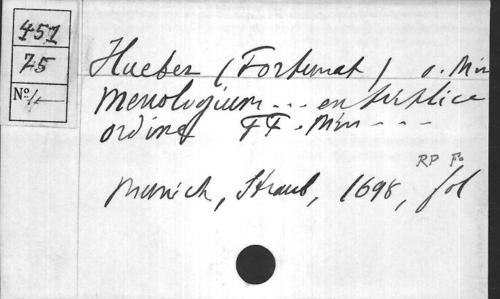 451
75
No 1
Hueber (Fortunat) o. Min
Menologium ... ex triplice
ordine FF. Min - - -
RP Fo
Munich, Straub, 1698, fol